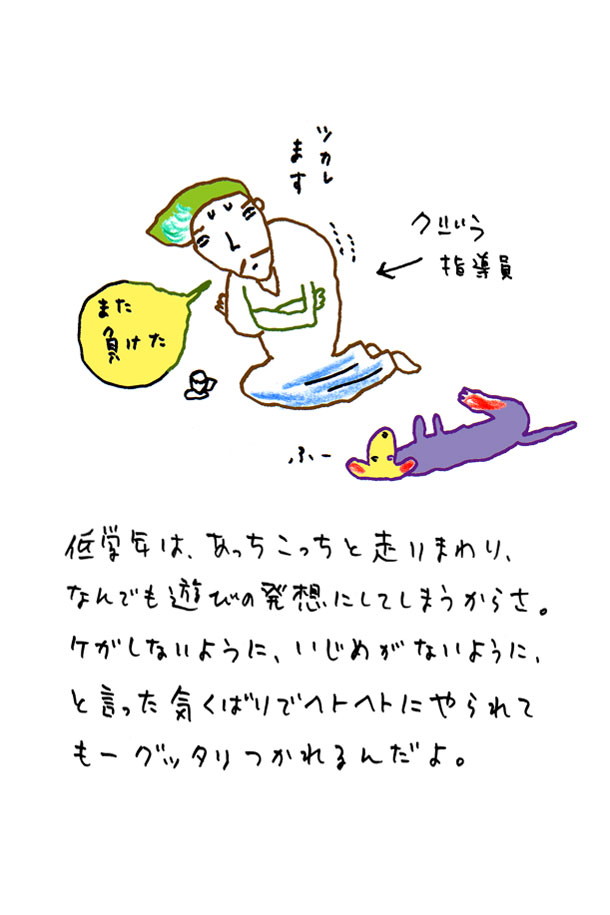 ツカレ
ます
指導員
また
負けた
ふー
低学年は、あっちこっちと走りまわり、
なんでも遊びの発想にしてしまうからさ。
ケガしないように、いじめがないように、
と言った気くばりでヘトヘトにやられて
もーグッタリつかれるんだよ。